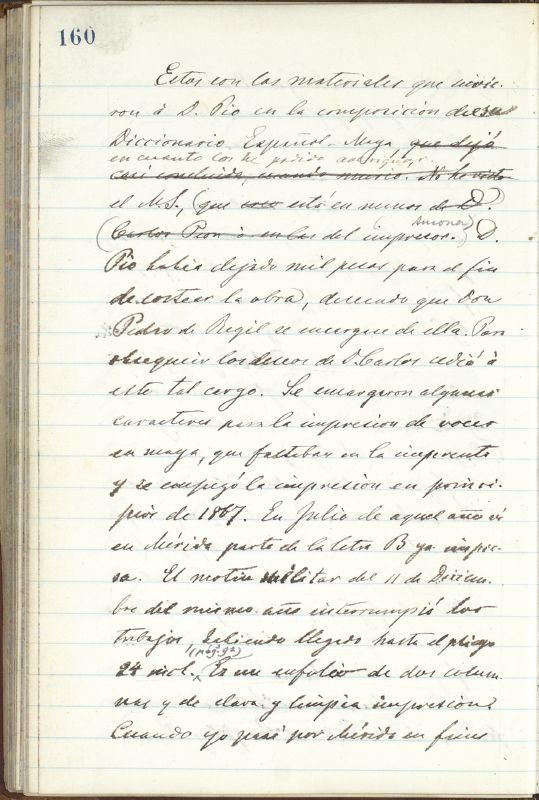 160
Estos son los materiales que sirvie-
ron á D. Pio en la composicion de su
Diccionario Español-Maya, que dejó
en cuanto los he podido averiguar.
casi concluido, cuando murió. No he visto
el M.S., (que está en manos de D.
Carlos Peon ó en las del impresor.) D.
(Ancona)
Pio habia dejado mil pesos para el fin
de costear la obra, deseando que Don
Pedro de Regil se encargue de ella. Para
obsequiar los deseos de D. Carlos cedió á
este tal cargo. Se encargaron algunos
caracteres para la impresion de voces
en maya, que faltaban en la imprenta
y se empezó la impresión en princi-
pios de 1867. En Julio de aquel año ví
en Mérida parte de la letra B ya impre-
sa. El motin militar del 11 de Diciem-
bre del mismo año interrumpió los
trabajos, habiendo llegado hasta el pliego
(pág. 92)
24 incl. Es un infolio de dos colum-
nas y de clara y limpia impresion.
Cuando yo pasé por Mérida en fines